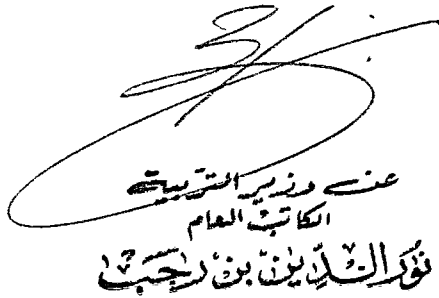 عن وزير التربية
الكاتب العام
نور الدين بن رجب